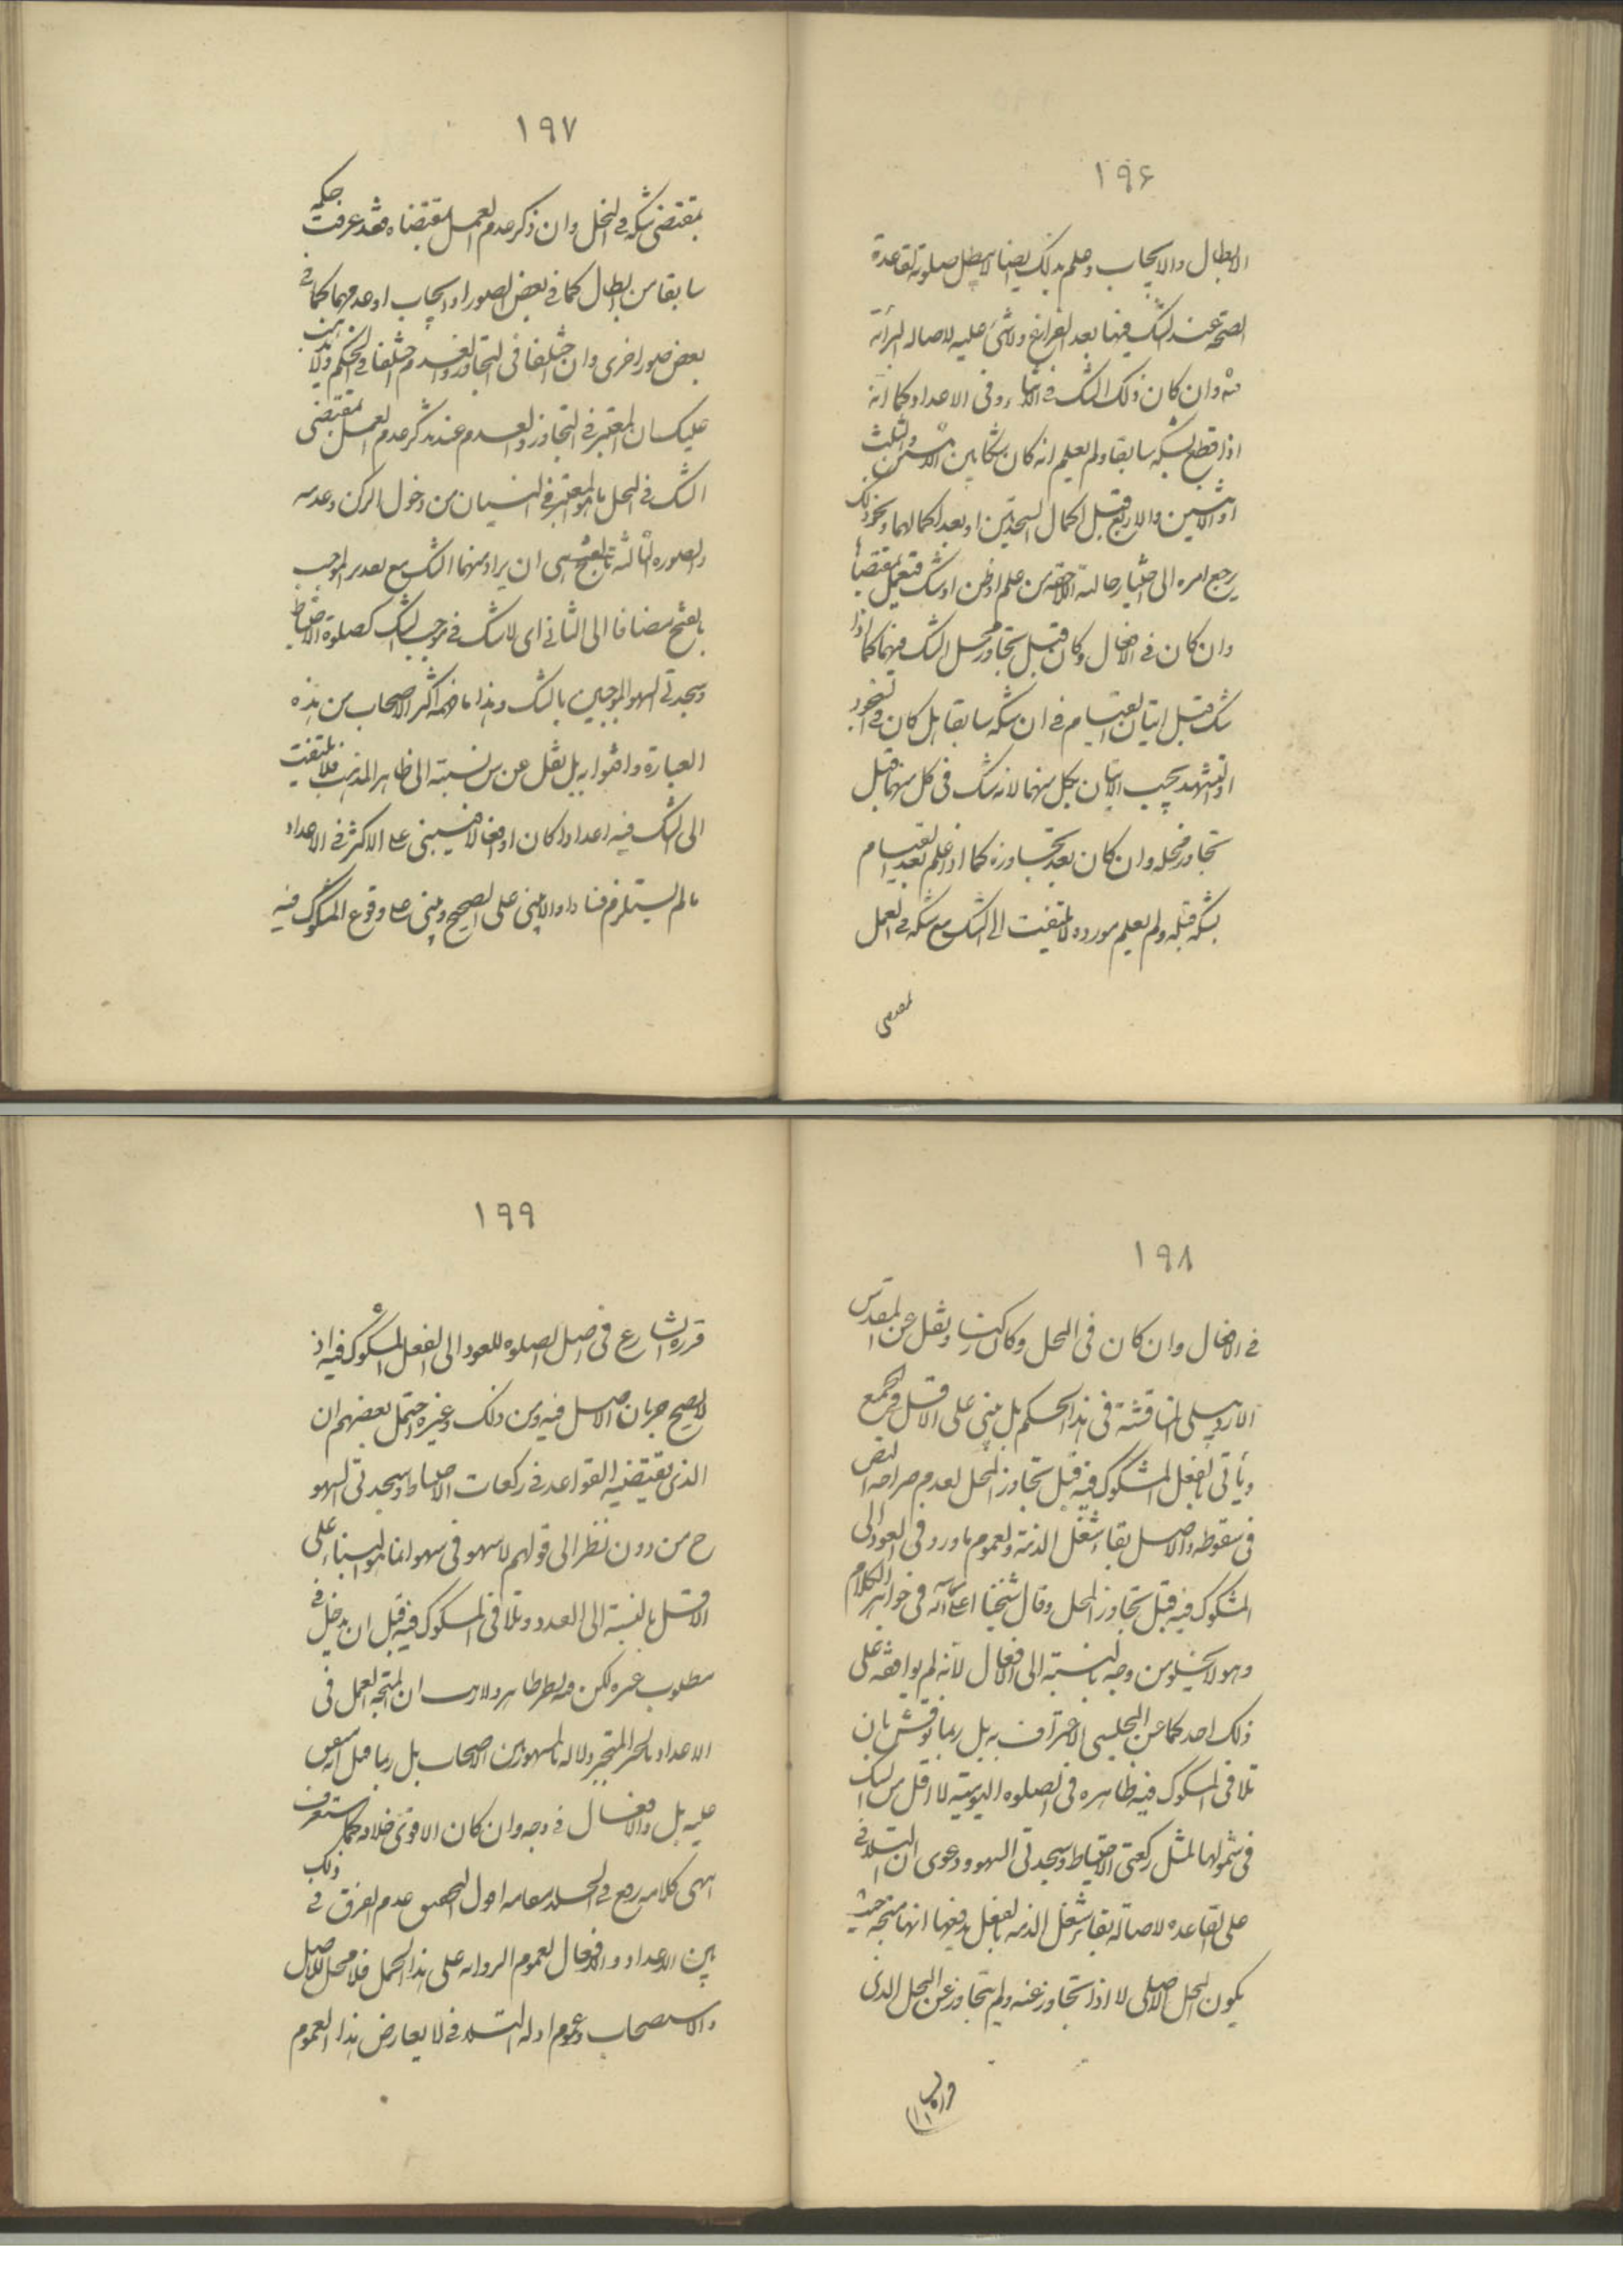 ١٩۶
الابطال والايجاب وعلم بذلك ايضا لا يبطل صلوته لقاعدة
الصحة عند الشك فيها بعد الفراغ ولا شئ عليه لاصالة البرائة
منه وان كان ذلك الشك فى الاثناء وفى الاعداد كما انه
اذا قطع بشكه سابقا ولم يعلم انه كان شكا بين الاثنين والثلث
او الاثنين والاربع قبل اكمال السجدتين او بعد اكمالهما ونحو ذلك
يرجع امره الى اعتبار حالته اللاحقة من علم او ظن او شك فيعمل بمقتضاها
وان كان فى الافعال وكان قبل تجاوز محل الشك فيهما كما اذا
شك قبل اتيان القيام فى ان شكه سابقا هل كان فى السجود
او التشهد يجب الاتيان بكل منهما لانه شك فى كل منهما قبل
تجاوز محله وان كان بعد تجاوزه كما اذا علم بعد القيام
بشكه قبله ولم يعلم مورده لا يلتفت الى الشك مع شكه فى العمل
بمقتضى
١٩٧
بمقتضى شكه فى المحل وان ذكر عدم العمل بمقتضاه فقد عرفت حكمه
سابقا من ابطال كما فى بعض الصور او ايجاب او عدمهما كما فى
بعض صور اخرى وان اختلفا فى التجاوز والعدم اختلفا فى الحكم ولا يذهب
عليك ان المعتبر فى التجاوز والعدم عند تذكر عدم العمل بمقتضى
الشك فى المحل ما هو المعتبر فى النسيان من دخول الركن وعدمه
والصورة الثالثة ان يراد منهما الشك مع تقدير الموجب
بالفتح مضافا الى الثانى اى لا شك فى موجب الشك كصلوة الاحتياط
وسجدتى السهو الموجبين بالشك وهذا ما فهمه اكثر الاصحاب من هذه
العبارة وافتوا به بل نقل عن نسبته الى ظاهر المذهب فلا يلتفت
الى الشك فيه اعدادا كان او افعالا فيبنى على الاكثر فى الاعداد
ما لم يستلزم فسادا والا يبنى على الصحيح ويبنى على وقوع المشكوك فيه
١٩٨
فى الافعال وان كان فى المحل وكالركعات ونقل عن المقدس
الاردبيلى المناقشة فى هذا الحكم بل يبنى على الاقل
ويأتى بالفعل المشكوك فيه قبل تجاوز المحل لعدم صراحة النص
فى سقوطه والاصل بقاء شغل الذمة ولعموم ما ورد فى العود الى
المشكوك فيه قبل تجاوز المحل وقال شيخنا فى جواهر الكلام
وهو لا يخلو من وجه بالنسبة الى الافعال لانه لم يوافقه على
ذلك احد كما عن المجلسى الاعتراف به بل ربما نوقش بان
تلافى المشكوك فيه ظاهره فى الصلوة اليومية لا اقل من الشك
فى شمولها لمثل ركعتى الاحتياط وسجدتى السهو ودعوى ان التلافى
على القاعدة لاصالة بقاء شغل الذمة بالفعل يدفعها انها متجه حيث
يكون المحل الاصلى لا اذا تجاوز عنه ولم يتجاوز عن المحل الذى
قرره
١٩٩
قرره الشارع فى اصل الصلوة للعود الى الفعل المشكوك فيه اذ
لا يصح جريان الاصل فيه ومن ذلك وغيره احتمل بعضهم ان
الذى يقتضيه القواعد فى ركعات الاحتياط وسجدتى السهو
ح من دون نظر الى قولهم لا سهو فى سهو انما هو البناء على
الاقل بالنسبة الى العدد وتلافى المشكوك فيه قبل ان يدخل فى
مطلوب غيره لكن ان المتجه العمل فى
الاعداد من الاصحاب بل ربما
عليه بل والافعال فى وجه وان كان الاقوى خلافه كما ستعرف
انتهى كلامه رفع مقامه اقول التحقيق عدم الفرق فى ذلك
بين الاعداد والافعال لعموم الرواية على هذا المحمل فلا محل للاصل
والاستصحاب وعموم ادلة التلافى لا يعارض هذا العموم